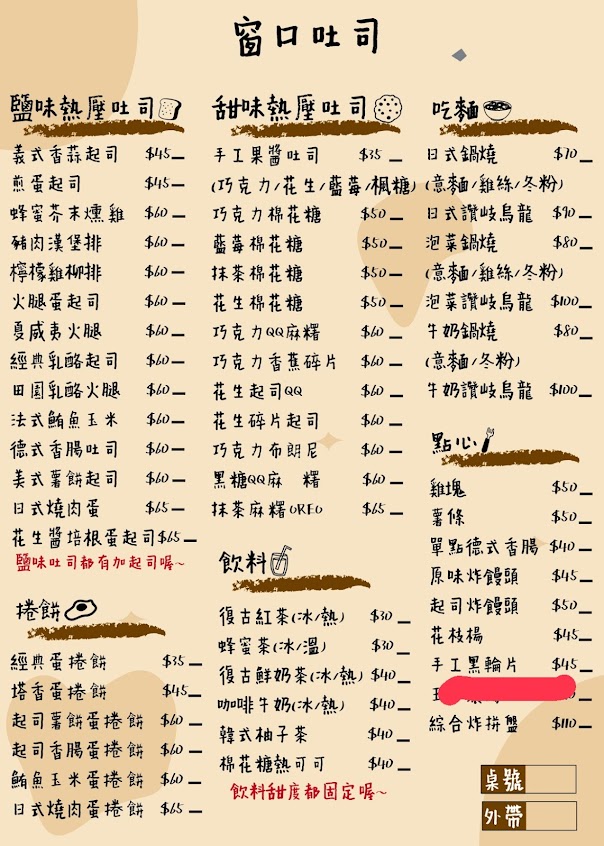 窗口吐司
鹽味熱壓吐司
義式香蒜起司 $45
煎蛋起司 $45
蜂蜜芥末燻雞 $60
豬肉漢堡排 $60
檸檬雞柳排 $60
火腿蛋起司 $60
夏威夷火腿 $60
經典乳酪起司 $60
田園乳酪火腿 $60
法式鮪魚玉米 $60
德式香腸吐司 $60
美式薯餅起司 $60
日式燒肉蛋 $65
花生醬培根蛋起司 $65
鹽味吐司都有加起司喔~
捲餅
經典蛋捲餅 $35
塔香蛋捲餅 $45
起司薯餅蛋捲餅 $60
起司香腸蛋捲餅 $60
鮪魚玉米蛋捲餅 $60
日式燒肉蛋捲餅 $65
甜味熱壓吐司
手工果醬吐司 $35
(巧克力/花生/藍莓/楓糖)
巧克力棉花糖 $50
藍莓棉花糖 $50
抹茶棉花糖 $50
花生棉花糖 $50
巧克力QQ麻糬 $60
巧克力香蕉碎片 $60
花生起司QQ $60
花生碎片起司 $60
巧克力布朗尼 $60
黑糖QQ麻 糬 $60
抹茶麻糬OREO $65
飲料
復古紅茶(冰/熱) $30
蜂蜜茶(冰/溫) $30
復古鮮奶茶(冰/熱) $40
咖啡牛奶(冰/熱) $40
韓式柚子茶 $40
棉花糖熱可可 $40
飲料甜度都固定喔~
吃麵
日式鍋燒 $70
(意麵/雞絲/冬粉)
日式讚岐烏龍 $90
泡菜鍋燒 $80
(意麵/雞絲/冬粉)
泡菜讚岐烏龍 $100
牛奶鍋燒 $80
(意麵/冬粉)
牛奶讚岐烏龍 $100
點心
雞塊 $50
薯條 $50
單點德式香腸 $40
原味炸饅頭 $45
起司炸饅頭 $50
花枝楊 $45
手工黑輪片 $45
綜合炸拼盤 $110
桌號
外帶